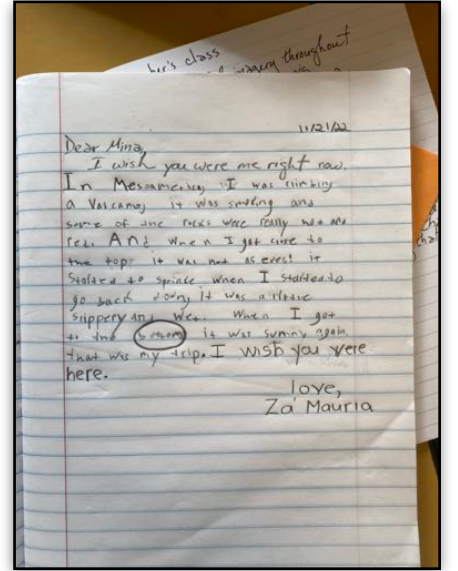 her's class
imagery throughout
11/21/22
Dear Mina,
I wish you were me right now.
In Mesoamerica, I was climbing
a Volcano, it was smoking and
some of the rocks were really hot and
red. And when I got close to
the top it was hot as ever! it
Started to sprinkle when I started to
go back down, it was a little
slippery and wet. When I got
to the bottom it was sunny again.
that was my trip. I wish you were
here.
love,
Za'Mauria